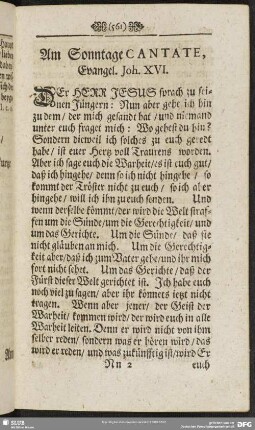 (561)
Am Sonntage CANTATE,
Evangel. Joh. XVI.
DEr HERR JESUS sprach zu sei-
nen Jüngern: Nun aber gehe ich hin
zu dem/ der mich gesandt hat/ und niemand
unter euch fraget mich: Wo gehest du hin?
Sondern dieweil ich solches zu euch geredt
habe/ ist euer Hertz voll Traurens worden.
Aber ich sage euch die Warheit/es ist euch gut/
daß ich hingehe/ denn so ich nicht hingehe/ so
kommet der Tröster nicht zu euch/ so ich aber
hingehe/ will ich ihn zu euch senden. Und
wenn derselbe kömmt/der wird die Welt straf-
fen um die Sünde/um die Gerechtigkeit/ und
um das Gerichte. Um die Sünde/ daß sie
nicht gläuben an mich. Um die Gerechtig-
keit aber/daß ich zum Vater gehe/und ihr mich
fort nicht sehet. Um das Gerichte/ daß der
Fürst dieser Welt gerichtet ist. Ich habe euch
noch viel zu sagen/ aber ihr könnets ietzt nicht
tragen. Wenn aber jener/ der Geist der
Warheit/ kommen wird/ der wird euch in alle
Warheit leiten. Denn er wird nicht von ihm
selber reden/ sondern was er hören wird/ das
wird er reden/ und was zukünfftig ist/wird Er
Nn 2 euch
SLUB
DFG